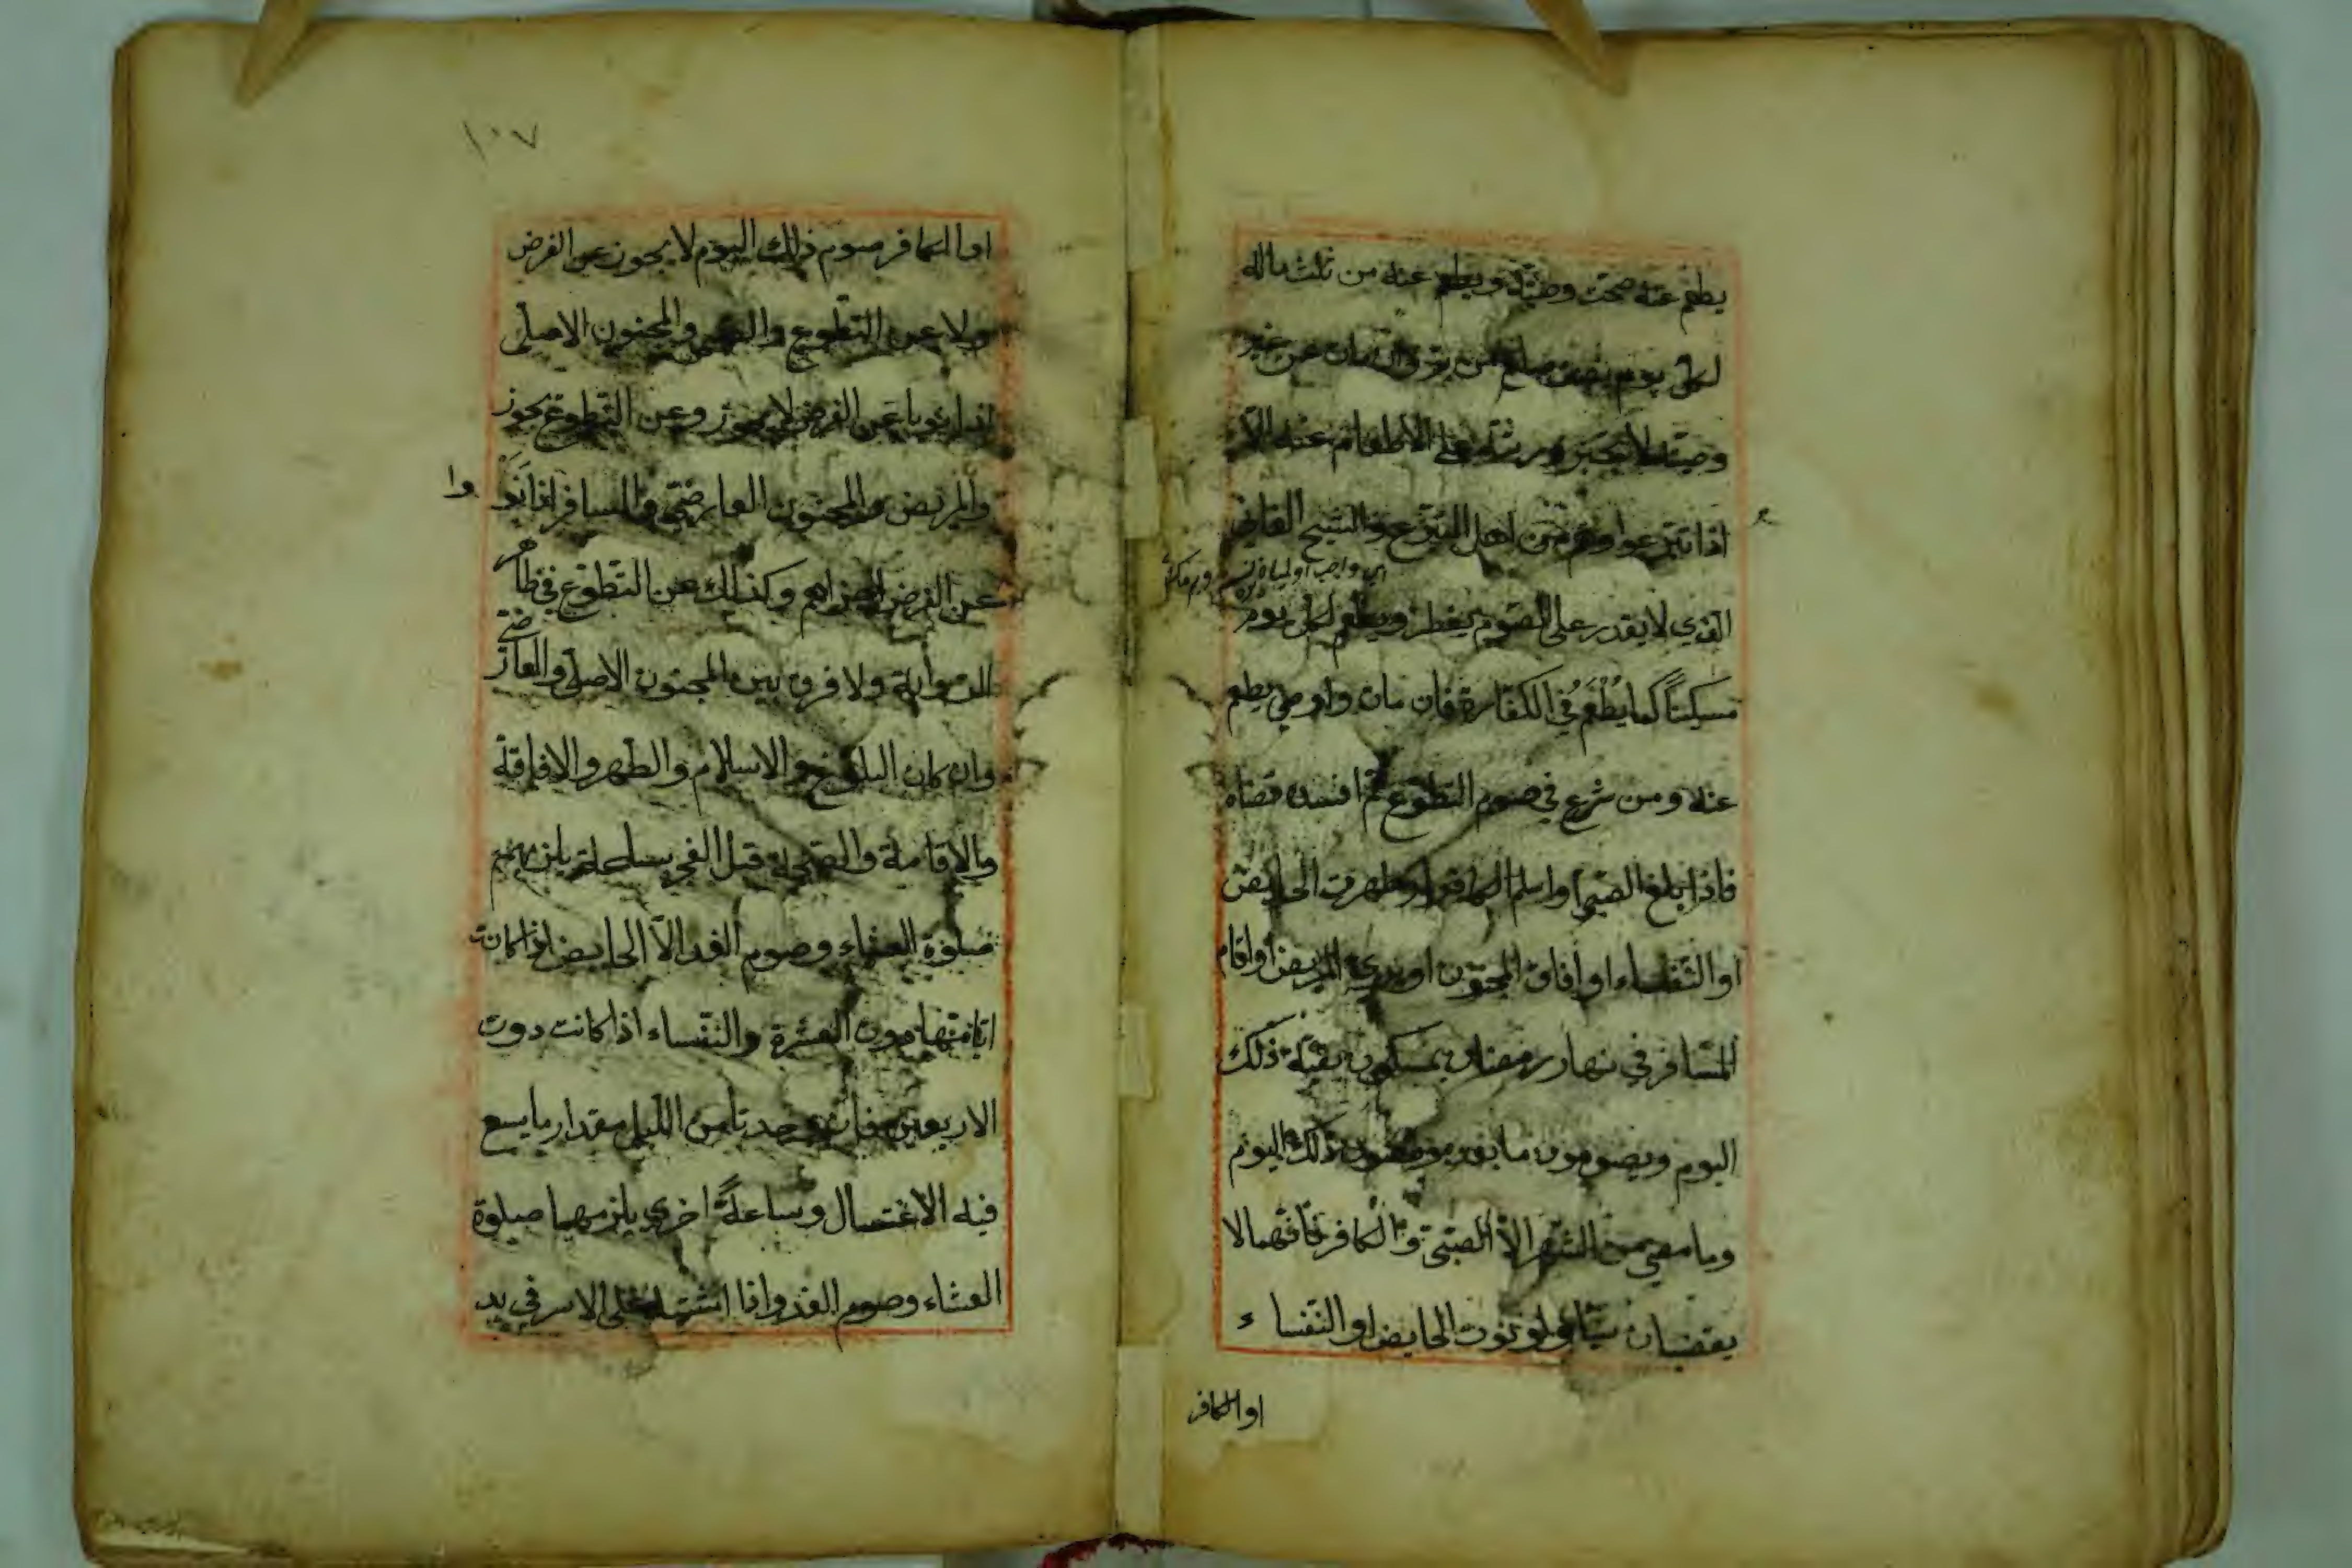 يطعم عنه صحت وصيته ويطعم عنه من ثلث ماله
لكل يوم نصف صاع من بر وان مات عن غير
وصيته لا يجبر ورثته على الاطعام عنه الا
اذا تبرعوا وهم من اهل التبرع والشيخ الفاني
الذي لا يقدر على الصوم يفطر ويطعم لكل يوم
مسكيناً كما يُطْعَمُ في الكفارة فان مات واوصى يطعم
عنه ومن شرع في صوم التطوع ثم افسده قضاه
فاذا بلغ الصبي او اسلم الكافر او طهرت الحايض
او النفساء او أفاق المجنون او برئ المريض او اقام
المسافر في نهار رمضان يمسكون بقية ذلك
اليوم ويصومون ما بقي ويقضون ذلك اليوم
وما مضى من الشهر الا الصبي والكافر فانهما لا
يقضيان شيئا ولو نوت الحايض او النفساء
او الكافر
١٠٧
او الكافر صوم ذلك اليوم لا يجوز عن الفرض
ولا عن التطوع والصبي والمجنون الاصلي
اذا نويا عن الفرض لا يجوز وعن التطوع يجوز
والمريض والمجنون العارضي والمسافر اذا نَوَوْا
عن الفرض اجزاهم وكذلك عن التطوع في ظاهر
الرواية ولا فرق بين المجنون الاصلي والعارضي
وان كان البلوغ والاسلام والطهر والافاقة
والاقامة والصحة قبل الفجر بساعة يلزمهم
صلوة العشاء وصوم الغد الا الحايض اذا كانت
ايامها دون العشرة والنفساء اذا كانت دون
الاربعين فان وجدتا من الليل مقدار ما يسع
فيه الاغتسال وساعةً اخرى يلزمهما صلوة
العشاء وصوم الغد واذا اشتبه على الاسير في يد